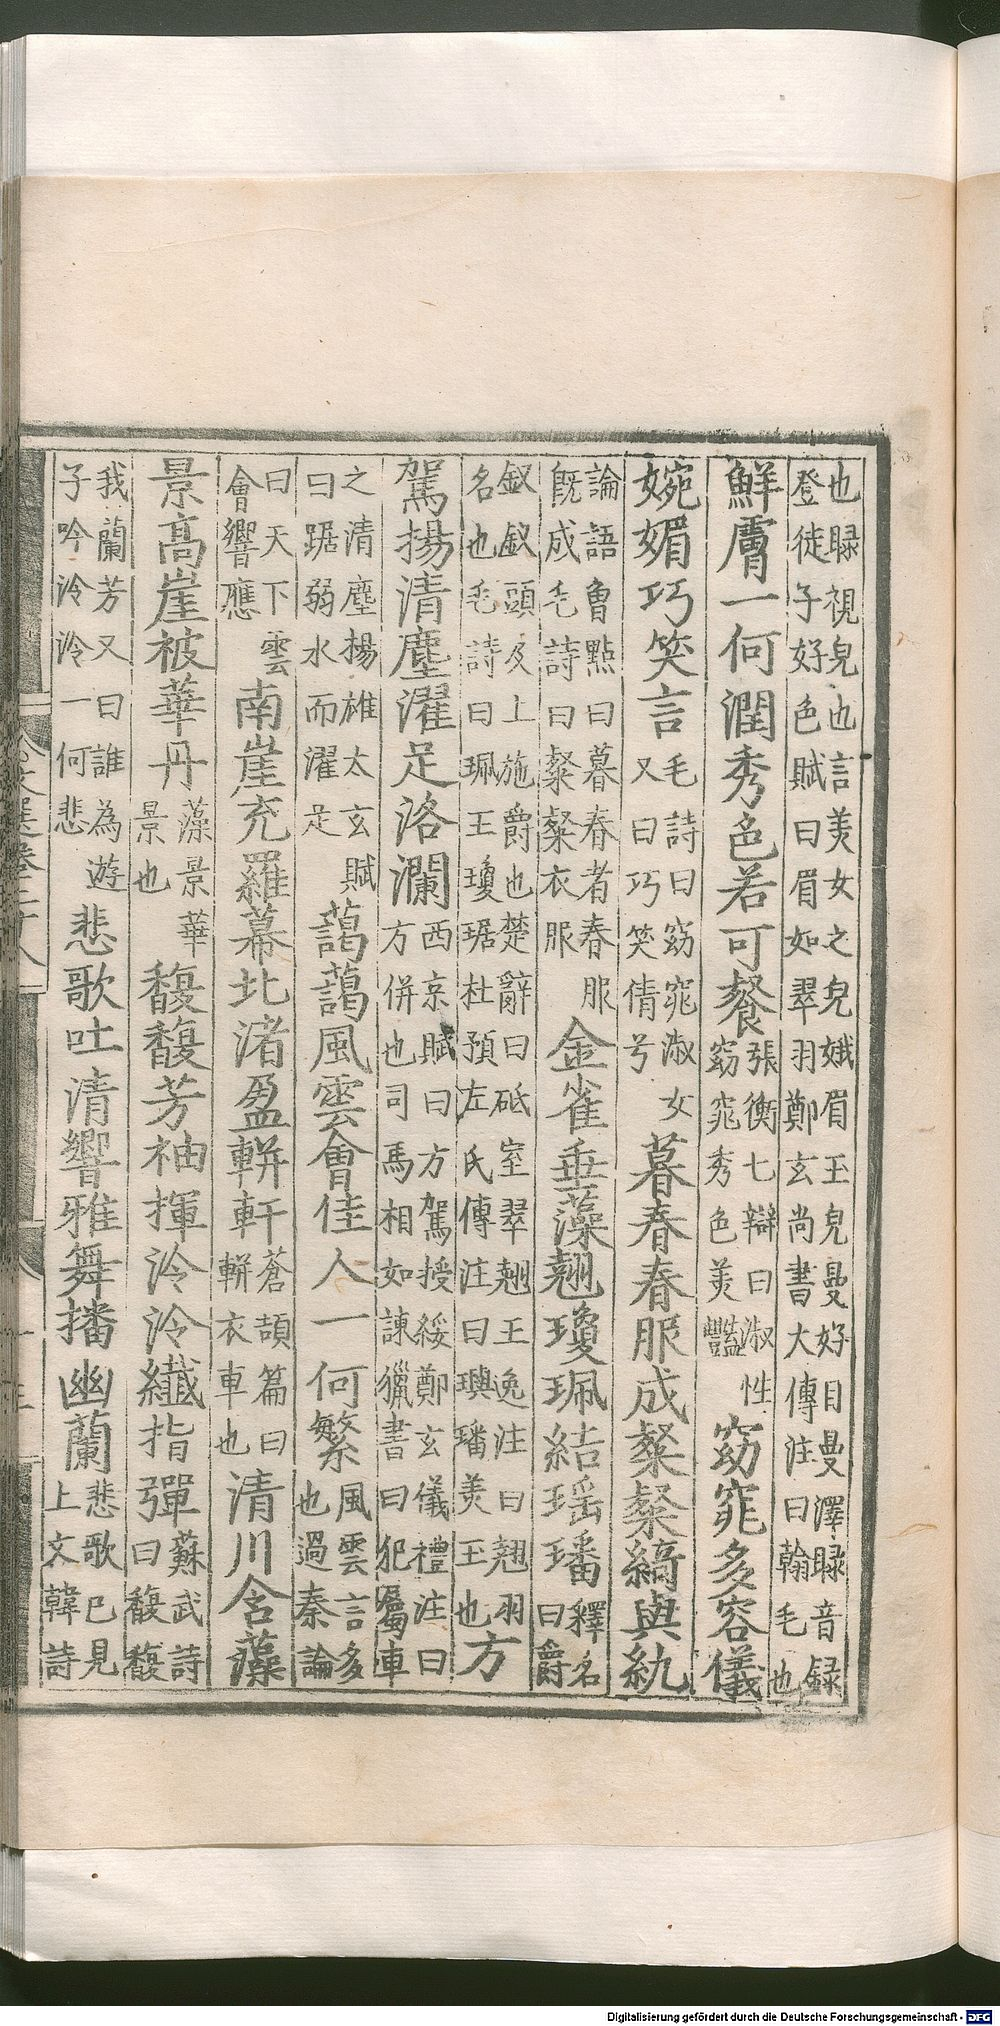 也睩視皃也言美女之皃娥眉玉皃曼好目曼澤睩音録
登徒子好色賦曰眉如翠羽鄭玄尚書大傳注曰翰毛也
鮮膚一何潤秀色若可餐張衡七辯曰淑性窈窕秀色美豔窈窕多容儀
婉媚巧笑言毛詩曰窈窕淑女又曰巧笑倩兮暮春春服成粲粲縞與紈
論語魯點曰暮春者春服既成毛詩曰粲粲衣服金雀垂藻翹瓊珮結瑶璠釋名曰爵
釵釵頭及上施爵也楚辭曰砥室翠翹王逸注曰翹羽名也毛詩曰珮玉瓊琚杜預左氏傳注曰璵璠美玉也方
駕揚清塵濯足洛瀾西京賦曰方駕授綏鄭玄儀禮注曰方併也司馬相如諫獵書曰犯屬車
之清塵揚雄太玄賦曰踞弱水而濯足藹藹風雲會佳人一何繁風雲言多也過秦論
曰天下雲會響應南崖充羅幕北渚盈軿軒蒼頡篇曰軿衣車也清川含藻
景高崖被華丹藻景華景也馥馥芳袖揮泠泠纖指彈蘇武詩曰馥馥
我蘭芳又曰誰為遊子吟泠泠一何悲悲歌吐清響雅舞播幽蘭悲歌已見上文韓詩
Digitalisierung gefördert durch die Deutsche Forschungsgemeinschaft - DFG